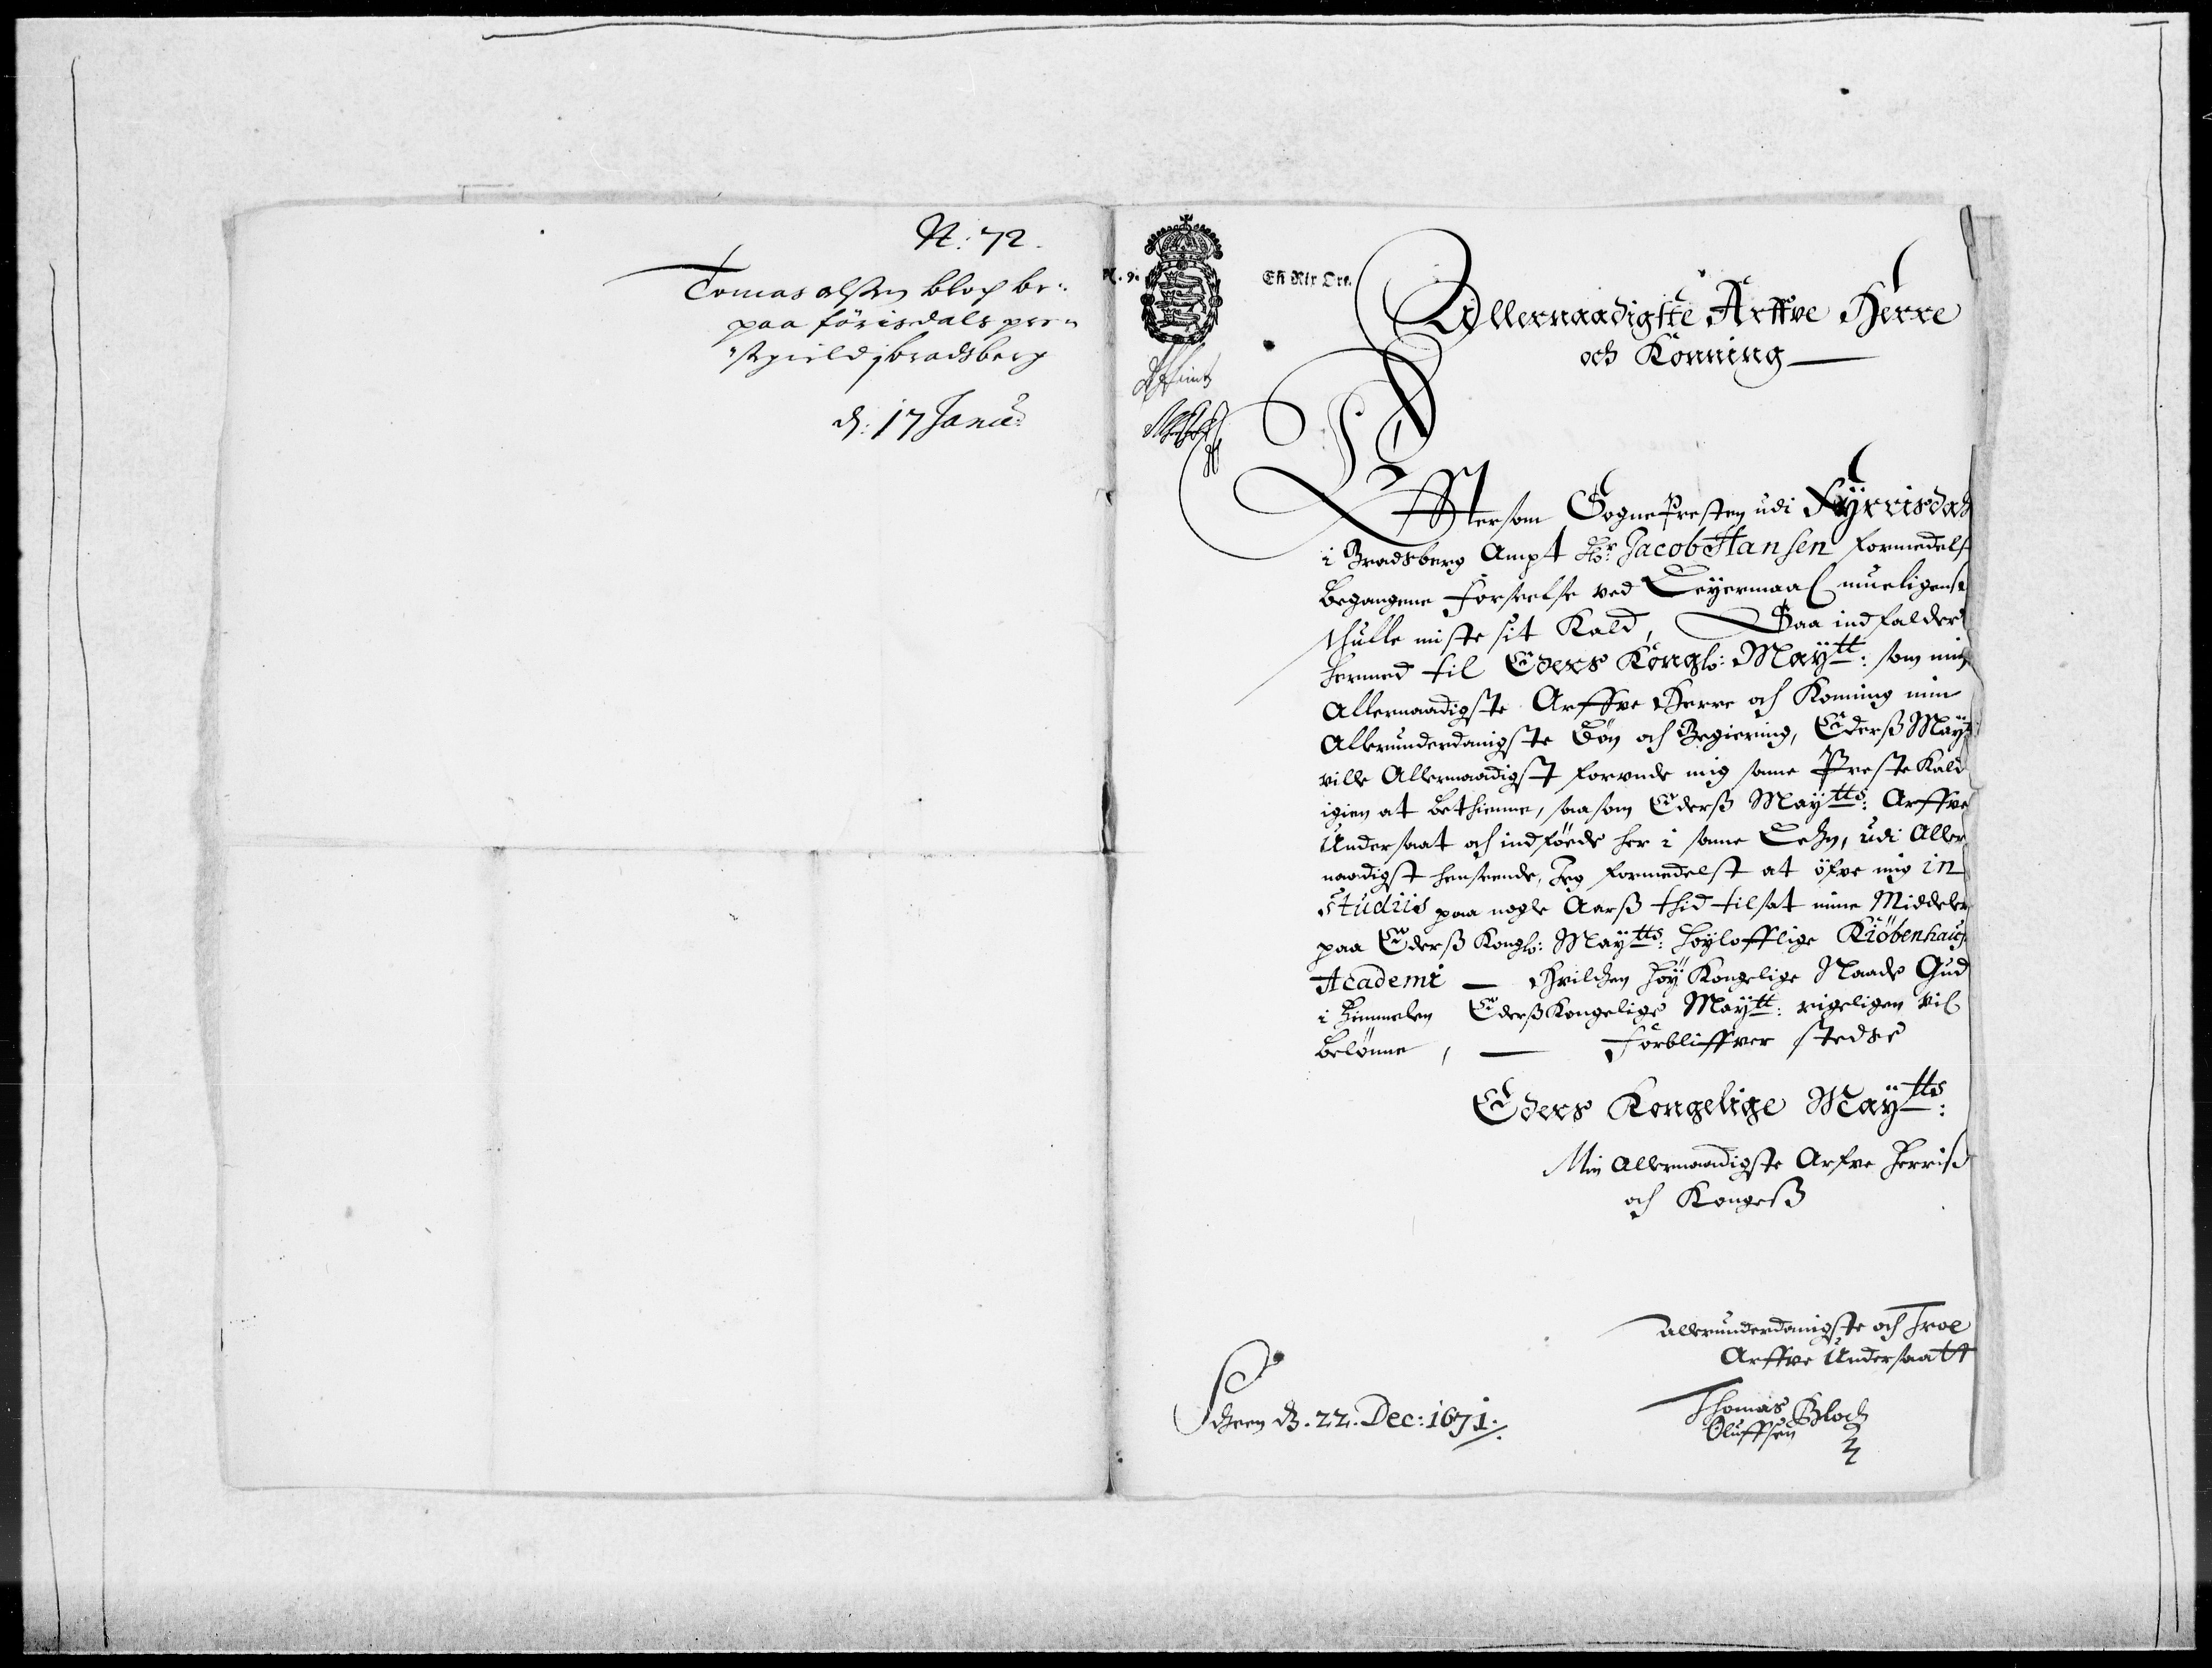 N: 72.
Tomas olssen bloch be-
paa förisdals pre-
stgield j bradsberg
d: 17 Janu:
N. 9.
En Rix Ort.
Allernaadigste Arffve Herre
och Konning
Effttersom Sognepresten udi Fÿrrisdal
i Bradsberg Ampt Hr: Jacob Hansen formedelst
begangene forseelse ved Leyermaal mueligenst
skulle miste sit Kald, Saa indfalder
hermed til Eders Kongl: Maÿtt: som min
Allernaadigste Arffve Herre och Konning min
Allerunderdanigste Bön och Begiering, Ederß Maÿtt:
ville Allernaadigst forunde mig same Preste Kald
igien at bethienne, saasom Ederß Maÿtts: Arffve
Undersaat och indföede her i same Lehn, udi Aller
naadigst henseende, Jeg formedelst at öfve mig in
studiis paa nogle Aarß thid tilsat mine Middeler
paa Ederß Kongl: Maÿtts: höylofflige Kiöbenhaufs
Academi — Hvilchen höy Kongelige Naade Gud
i Himmelen Ederß Kongelige Maÿtt: rigeligen vil
belönne, — Forbliffver stedse
Eders Kongelige Maÿtts:
Min Allernaadigste Arfve Herris
och Kongeß
Allerunderdanigste och Troe
Arffve Undersaatt
Scheen d. 22. Dec: 1671.
Thomas Bloch
Oluffsen